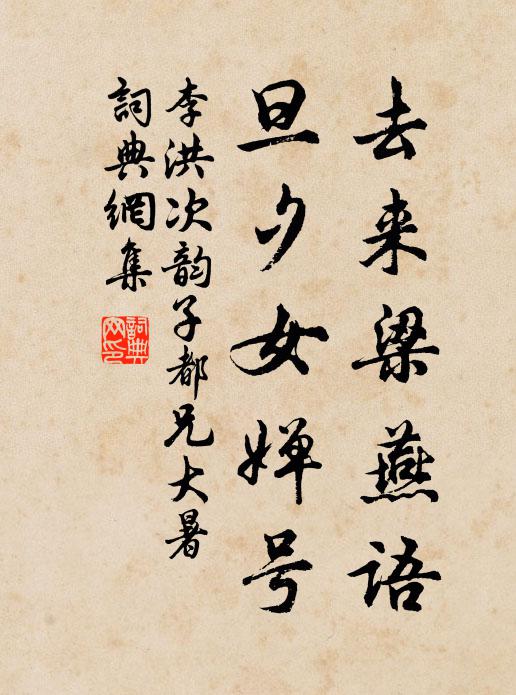 去来梁燕语
旦夕女婵号
李洪次韵子都兄大暑
詞典網集
詞典網印